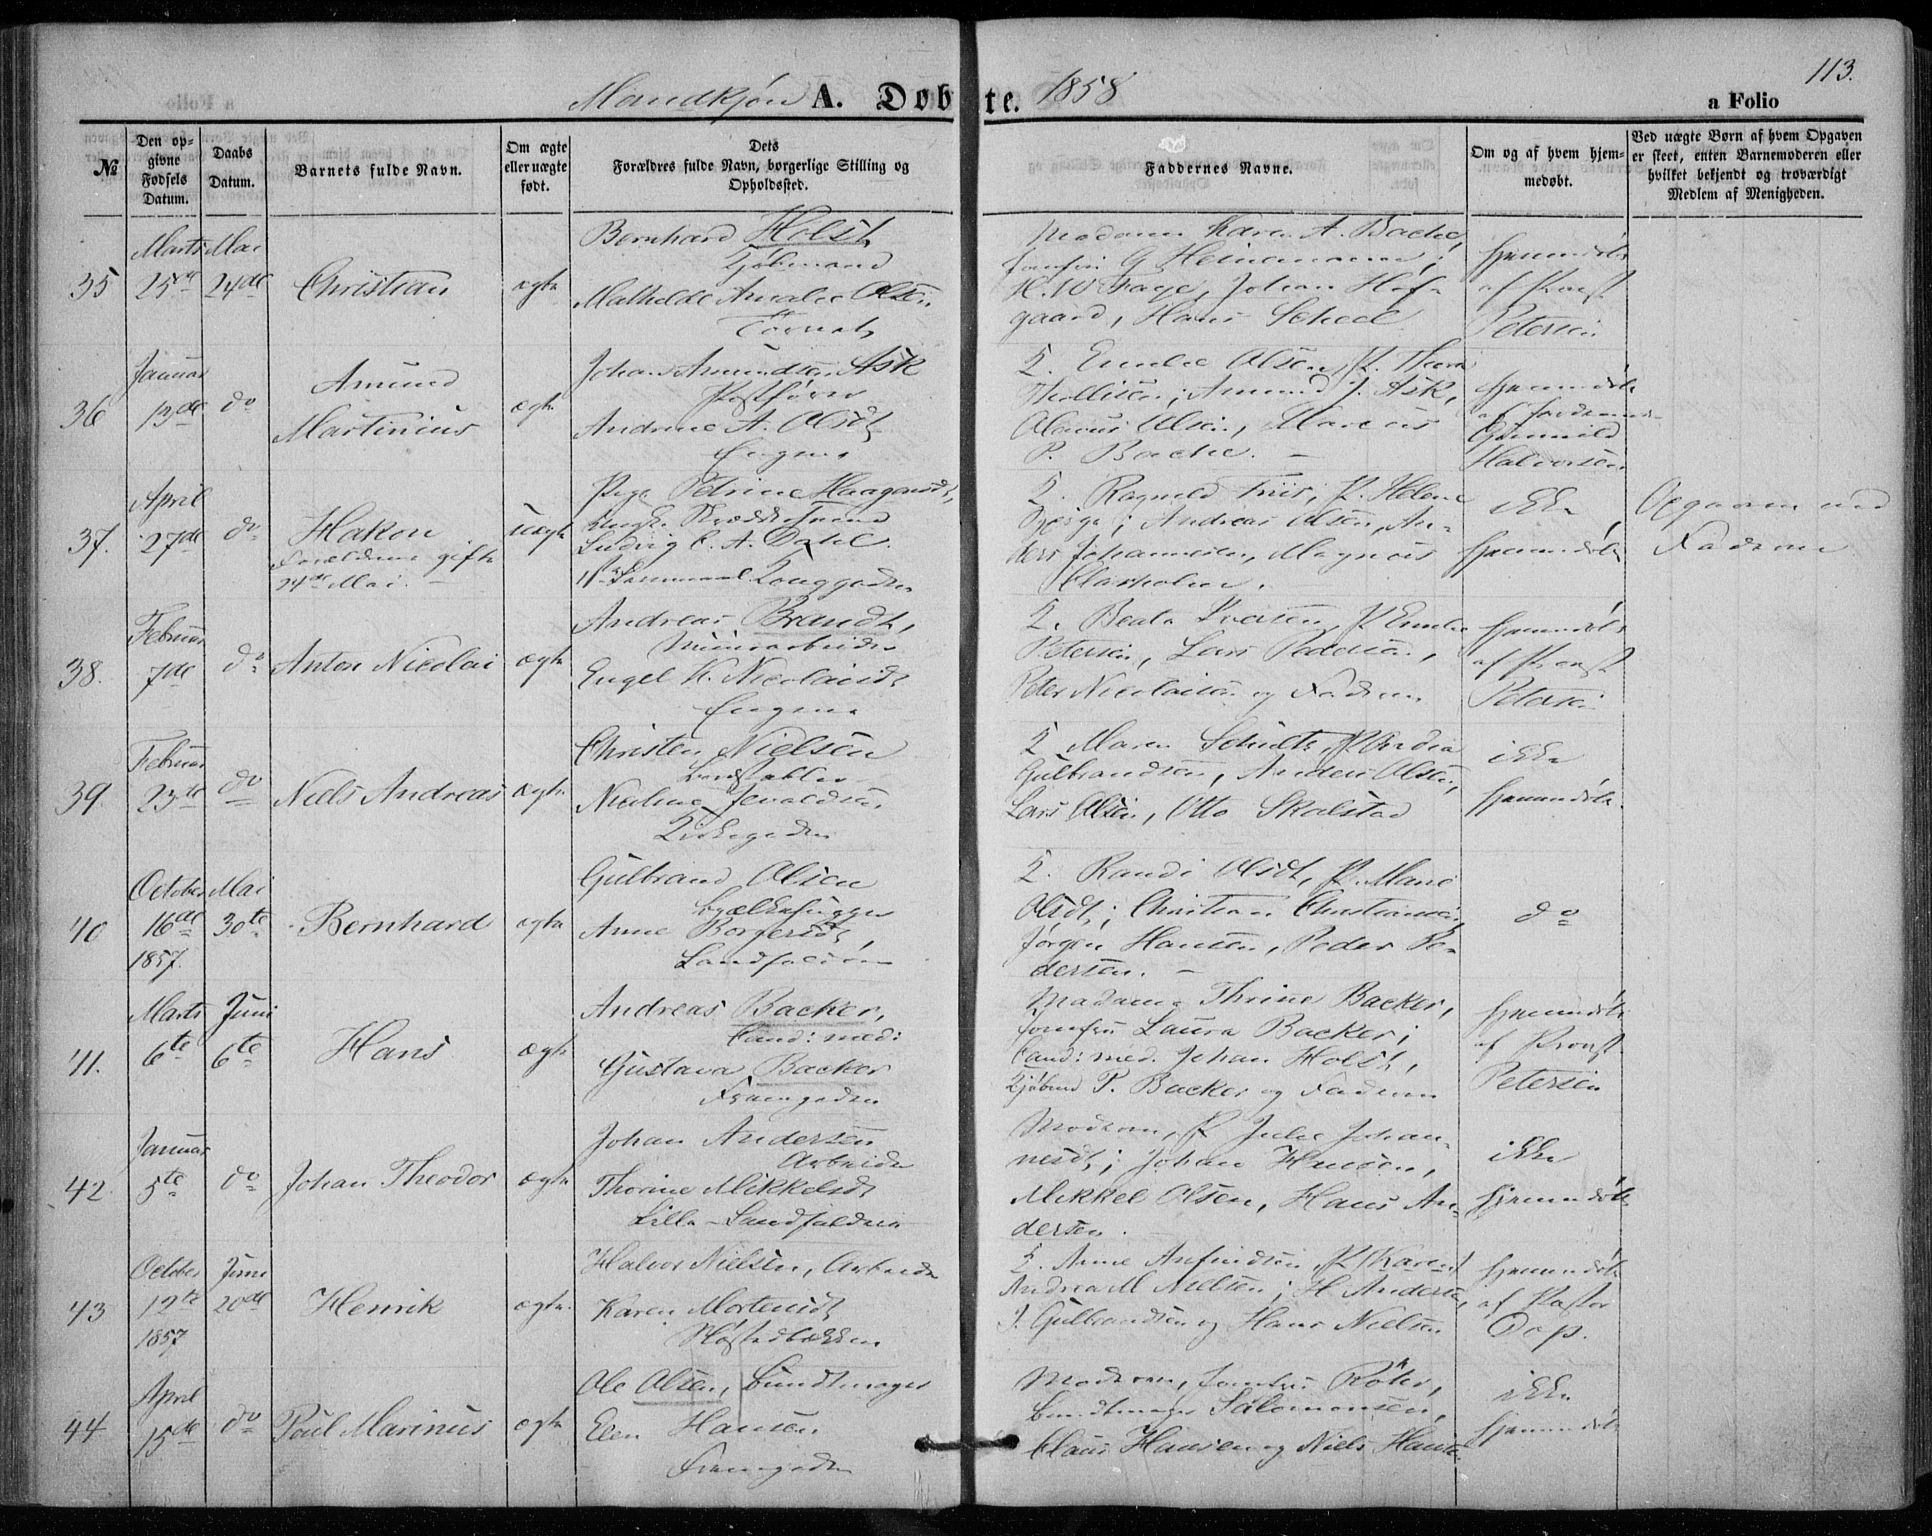 113.
Mandkjøn A. Døbte. 1858
a Folio
№
Den opgivne Fødsels Datum.
Daabs Datum.
Barnets fulde Navn.
Om ægte eller uægte født.
Dets Forældres fulde Navn, borgerlige Stilling og Opholdssted.
Faddernes Navne.
Om og af hvem hjemmedøbt.
Ved uægte Børn af hvem Opgaven er skeet, enten Barnemoderen eller hvilket bekjendt og troværdigt Medlem af Menigheden.
35
Marts
25de
Mai
24de
Christian
ægte
Bernhard Holst
Kjøbmand
Mathilde Amalie Olsen
Madame Karen A. Bache,
Jomfru G Heinemann;
H. W Faye, Johan Hof-
gaard, Hans Scheel
hjemmedøbt
af Provst
Petersen
36
Januar
13de
do
Amund
Martinius
ægte
Johan Amundsen Ask
Postfører
Andrine A. Olsdt
Engene
K. Emilie Olsen, P. Thora
Amund J. Ask,
Olavus Olsen, Marcus
P. Bache. –
hjemmedøbt
af Jordemoder
Gunnild
Halvorsen
37.
April
27de
do
Hakon
Forældrene gifte
24de Mai. –
uægte
Pige Petrine Haagensdt,
Ungk. Skrædersvend
Ludvig C. A. Dahl.
Konggaden
K. Ragnild Friis, P. Helene
Andreas Olsen, An-
ders Johannesen, Magnus
Clasholm.
ikke
hjemmedøbt
Opgaven ved
Faderen
38.
Februar
7de
do
Anton Nicolai
ægte
Andreas Brandt,
Muurarbeider
Engel K. Nicolaisdt
Engene
K. Beate Iversen, P. Emilie
Petersen, Lars Pedersen,
Peter Nicolaisen og Faderen
hjemmedøbt
af Provst
Petersen
39.
Februar
23de
do
Niels Andreas
ægte
Christen Nielsen
Nicoline Jevaldsen
Kirkegaden
K Maren Schults, P. Andrea
Gulbrandsen, Anders Olsen,
Lars Olsen, Otto Skalstad
ikke
hjemmedøbt.
40
October
16de
1857.
Mai
30te
Bernhard
ægte
Gulbrand Olsen
Bjælkehugger
Anne Borgersdt,
Landfalden
K. Randi Olsdt, P. Marie
Olsdt; Christian Christiansen,
Jørgen Hansen, Peder Pe-
dersen. –
do
41.
Marts
6te
Juni
6te
Hans
ægte
Andreas Backer,
Cand: med:
Gustava Backer
Strømgaden
Madame Thrine Backer,
Jomfru Laura Backer;
Cand: med. Johan Holst,
Kjøbmd P. Backer og Faderen
hjemmedøbt
af Provst
Petersen
42
Januar
5te
do
Johan Theodor
ægte
Johan Andersen
Arbeider
Thorine Mikkelsdt
Lille-Landfalden
Moderen, P Julie Johan-
nesdt; Johan Hansen,
Mikkel Olsen, Hans An-
dersen.
ikke
hjemmedøbt
43
October
12te
1857
Juni
20de
Henrik
ægte.
Halvor Nielsen, Arbeider
Karen Mortensdt
K. Anne Anfindsen, P (Karen)
Andrea M Nielsen; H. Andersen,
J. Gulbrandsen og Hans Nielsen
hjemmedøbt
af Pastor
Dop.
44
April
15de
do
Poul Marinus
ægte
Ole Olsen, Bundtmager
Elen Hansen
Strømgaden
Moderen, Jomfru Röhr,
Bundtmager Salomonsen,
Claus Hansen og Niels Hansen
ikke
hjemmedøbt